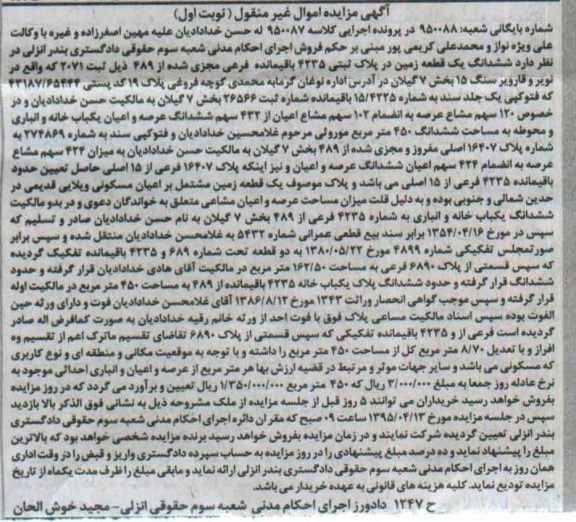 آگهی مزایده اموال غیر منقول (نوبت اول)
شماره بایگانی شعبه: ۹۵۰۰۸۸ در پرونده اجرایی کلاسه ۹۵۰۰۸۷ له حسن خدادادیان علیه مهین اصفرزاده و غیره با وکالت
علی ویژه نواز و محمدعلی کریمی پور مبنی بر حکم فروش اجرای احکام مدنی شعبه سوم حقوقی دادگستری بندر انزلی در
نظر دارد ششدانگ یک قطعه زمین در پلاک ثبتی ۴۲۳۵ باقیمانده فرعی مجزی شده از ۴۸۹ ذیل ثبت ۲۰۷۱ که واقع در
نویر و قاریور سنگ ۱۵ بخش ۷ گیلان در آدرس اداره نوغان گرمابه محمدی کوچه فروغی پلاک ۱۹ کد پستی ۴۳۱۸۷/۶۵۴۴۴
که فتوکپی یک جلد سند به شماره ۱۵/۴۲۲۵ باقیمانده شماره ثبت ۲۶۵۶۶ بخش ۷ گیلان به مالکیت حسن خدادادیان و در
خصوص ۱۲۰ سهم مشاع عرصه به انضمام ۱۰۲ سهم مشاع اعیان از ۴۳۲ سهم ششدانگ عرصه و اعیان یکباب خانه و انباری
و محوطه به مساحت ششدانگ ۴۵۰ متر مربع موروثی مرحوم غلامحسین خدادادیان و فتوکپی سند به شماره ۲۷۴۸۶۹ به
شماره پلاک ۱۶۴۰۷ اصلی مفروز و مجزی شده از ۴۸۹ بخش ۷ گیلان به مالکیت حسن خدادادیان به میزان ۴۲۴ سهم مشاع
عرصه به انضمام ۴۲۴ سهم اعیان ششدانگ عرصه و اعیان و نیز اینکه پلاک ۱۶۴۰۷ فرعی از ۱۵ اصلی حاصل تعیین حدود
باقیمانده ۴۲۳۵ فرعی از ۱۵ اصلی می باشد و پلاک موصوف یک قطعه زمین مشتمل بر اعیان مسکونی ویلایی قدیمی در
حدین شمالی و جنوبی بوده و به دلیل قلت میزان مساحت عرصه و اعیان مشاعی متعلق به خواندگان دعوی و در بدو مالکیت
ششدانگ یکباب خانه و انباری به شماره ۴۲۳۵ فرعی از ۴۸۹ بخش ۷ گیلان به نام حسن خدادادیان صادر و تسلیم که
سپس در مورخ ۱۳۵۴/۰۴/۱۶ برابر سند بیع قطعی عمرانی شماره ۵۴۳۲ به غلامحسن خدادادیان منتقل شده و سپس برابر
صورتمجلس تفکیکی شماره ۴۸۹۹ مورخ ۱۳۸۰/۰۵/۲۲ به دو قطعه تحت شماره ۶۸۹ و ۴۲۳۵ باقیمانده تفکیک گردیده
که سپس قسمتی از پلاک ۶۸۹۰ فرعی به مساحت ۱۶۲/۵۰ متر مربع در مالکیت آقای هادی خدادادیان قرار گرفته و حدود
ششدانگ قرار گرفته و حدود ششدانگ پلاک یکباب خانه ۴۲۳۵ باقیمانده از ۴۸۹ به مساحت ۴۵۰ متر مربع در مالکیت اوله
قرار گرفته و سپس موجب گواهی انحصار وراثت ۱۳۴۳ مورخ ۱۳۸۶/۸/۱۲ آقای غلامحسن خدادادیان فوت و دارای ورثه حین
الفوت بوده سپس اسناد مالکیت مساعی پلاک فوق با فوت احد از ورثه خانم رقیه خدادادیان به صورت کمافرض اله صادر
گردیده است فرعی از و ۴۲۳۵ باقیمانده تفکیکی که سپس قسمتی از پلاک ۶۸۹۰ تقاضای تقسیم ماترک اعم از تقسیم وه
افراز و با تعدیل ۸/۷۰ متر مربع کل از مساحت ۴۵۰ متر مربع را داشته و با توجه به موقعیت مکانی و منطقه ای و نوع کاربری
که مسکونی می باشد و سایر جهات موثر و مرتبط در قضیه ارزش بها هر متر مربع از عرصه و اعیان و انباری احداثی موجود به
نرخ عادله روز جمعا به مبلغ ۳/۰۰۰/۰۰۰ ریال که ۴۵۰ متر مربع ۱/۳۵۰/۰۰۰/۰۰۰ ریال تعیین و برآورد می گردد که در روز مزایده
بفروش خواهد رسید خریداران می توانند ۵ روز قبل از جلسه مزایده از ملک مشروحه ذیل به نشانی فوق الذکر بالا بازدید
سپس در جلسه مزایده مورخ ۱۳۹۵/۰۴/۱۳ ساعت ۰۹ صبح که مقر ان دائره اجرای احکام مدنی شعبه سوم حقوقی دادگستری
بندر انزلی تعیین گردیده شرکت نمایند و در زمان مزایده بفروش خواهد رسید برنده مزایده شخصی خواهد بود که بالاترین
مبلغ را پیشنهاد نماید و ده درصد مبلغ پیشنهادی را در روز مزایده به حساب سپرده دادگستری واریز و قبض را در وقت اداری
همان روز به اجرای احکام مدنی شعبه سوم حقوقی دادگستری بندر انزلی ارائه نماید و مابقی مبلغ را ظرف مدت یکماه از تاریخ
مزایده تودیع نماید. کلیه هزینه های قانونی به عهده خریدار می باشد.
ح ۱۲۴۷ دادورز اجرای احکام مدنی شعبه سوم حقوقی انزلی- مجید خوش الحان